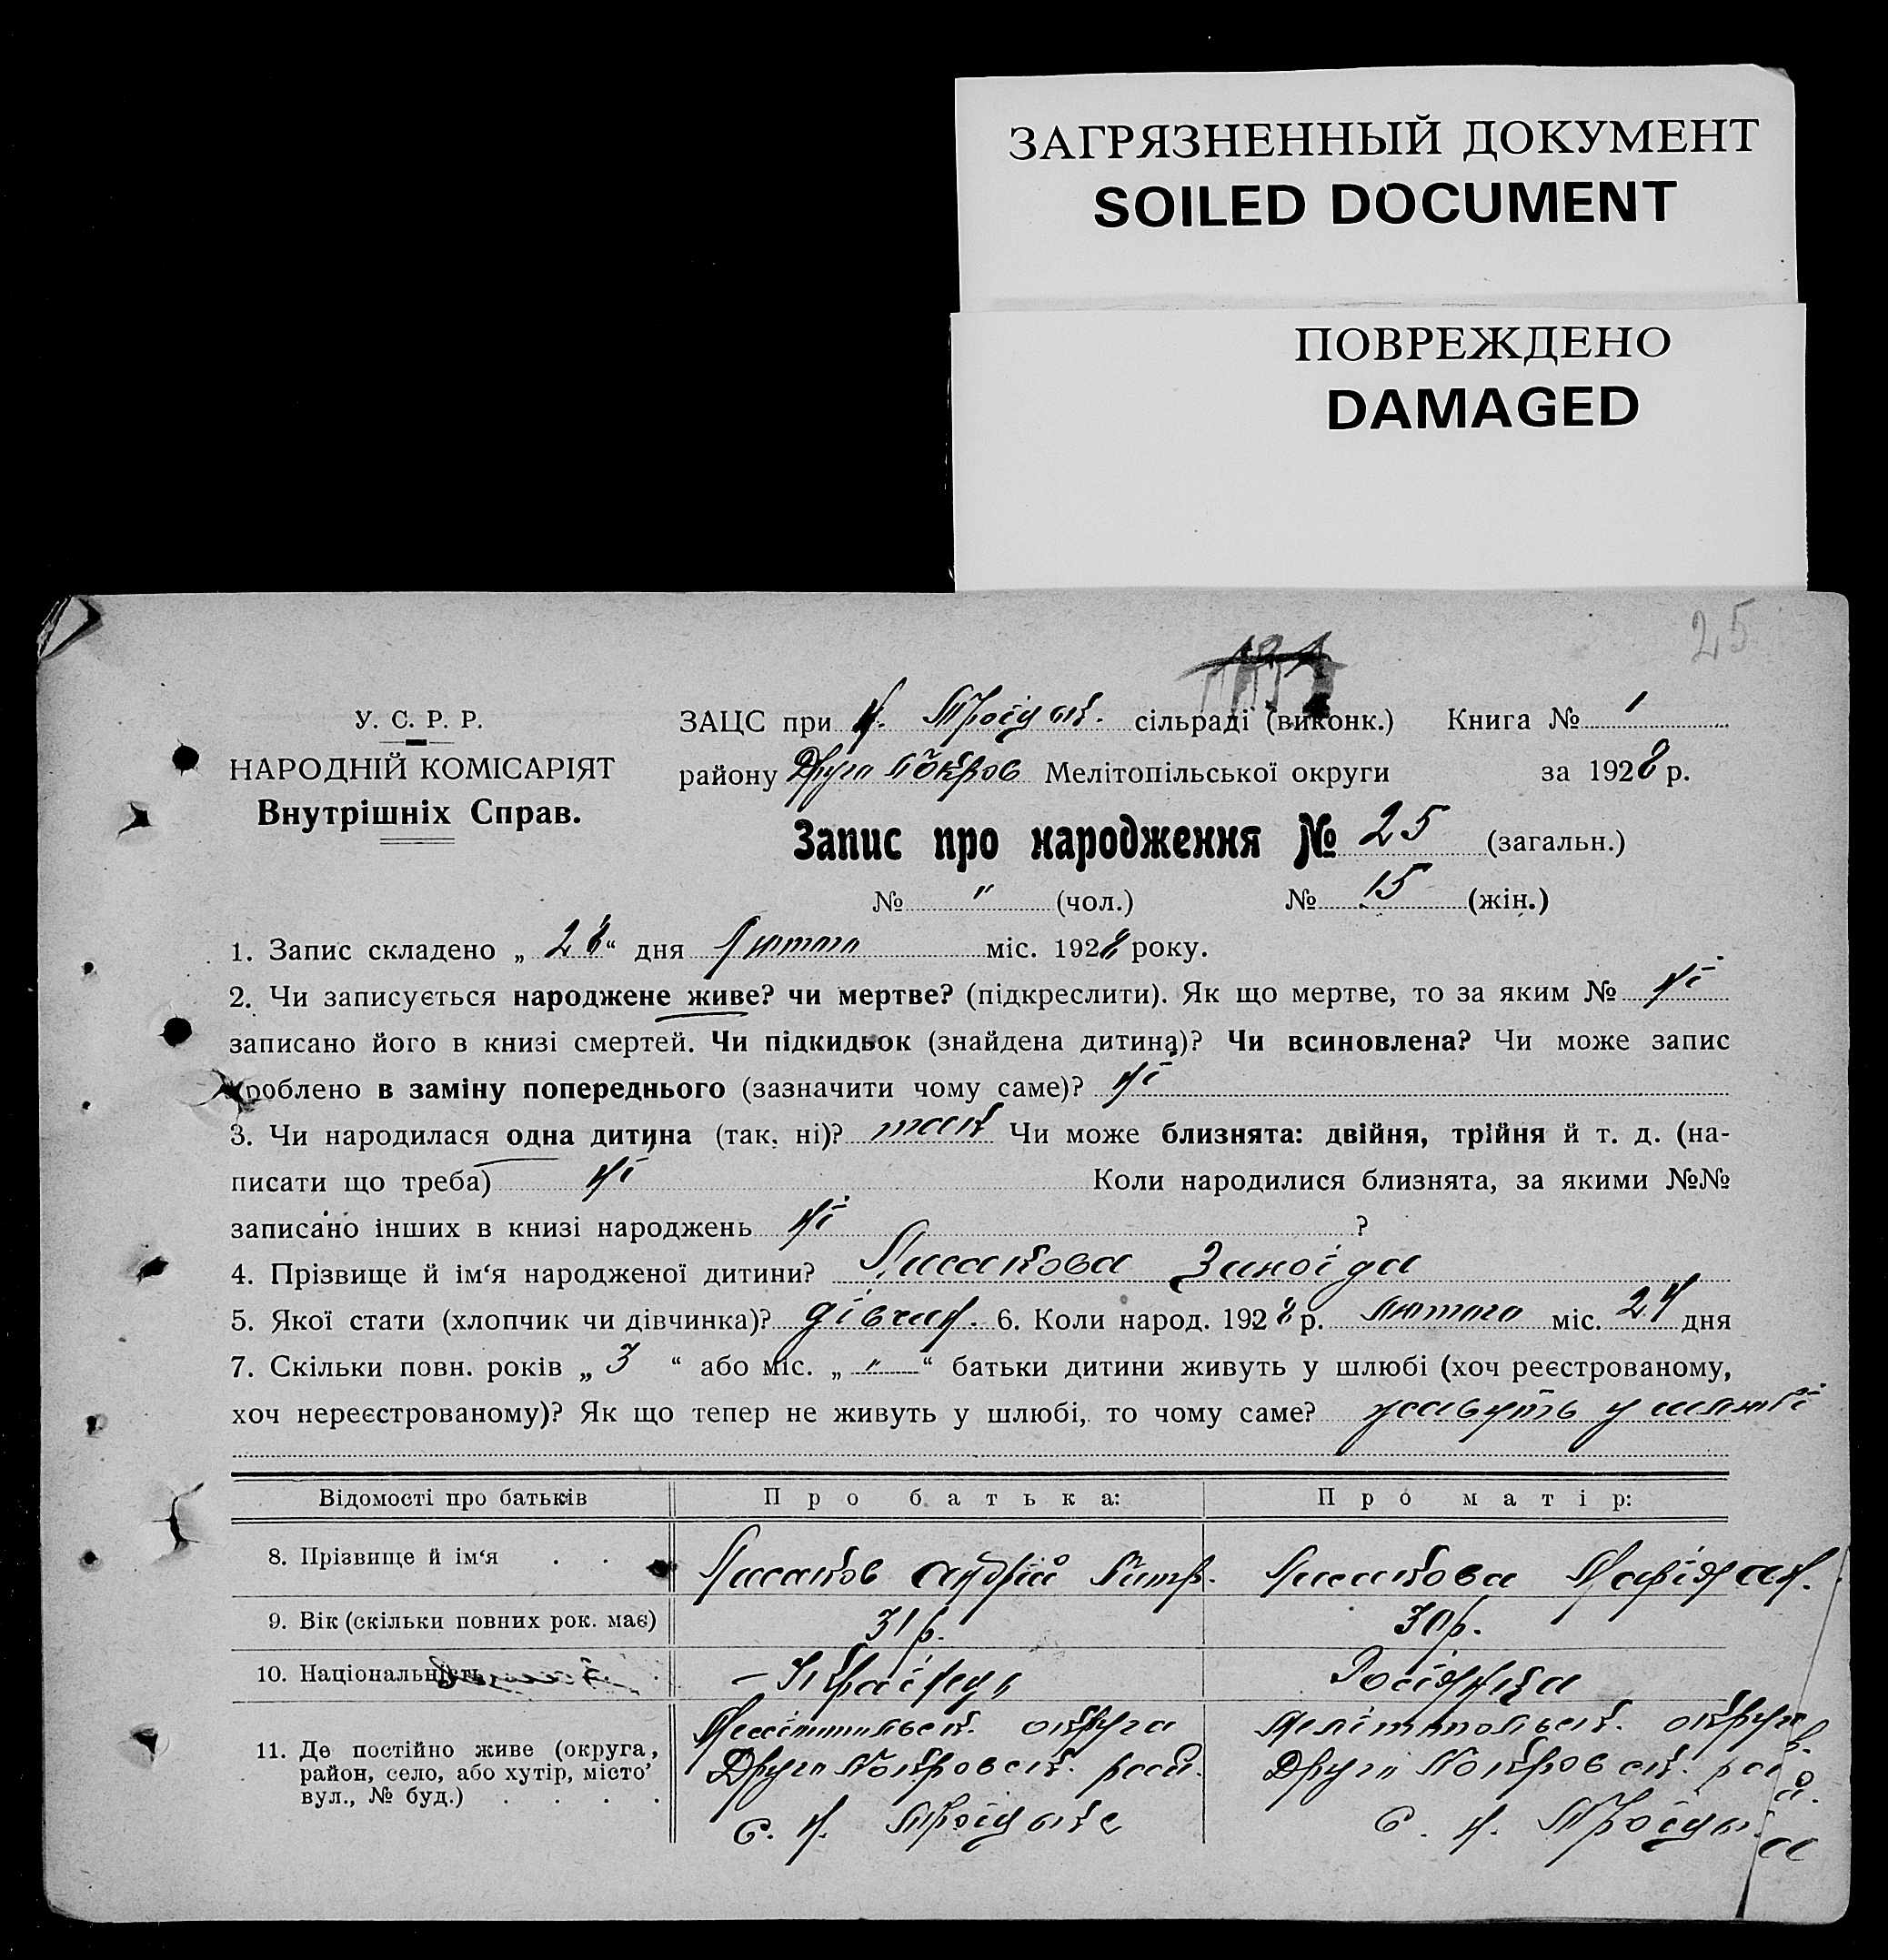 ЗАГРЯЗНЕННЫЙ ДОКУМЕНТ
SOILED DOCUMENT
ПОВРЕЖДЕНО
DAMAGED
25
У. С. Р. Р.
НАРОДНІЙ КОМІСАРІЯТ
Внутрішніх Справ.
ЗАЦС при Н. Троіцьк. сільраді (виконк.) Книга № 1
району Друго Покров Мелітопільської округи за 1928 р.
Запис про народження № 25 (загальн.)
№ " (чол.) № 15 (жін.)
1. Запис складено „ 28 “ дня Лютого міс. 1928 року.
2. Чи записується народжене живе? чи мертве? (підкреслити). Як що мертве, то за яким № ні
записано його в книзі смертей. Чи підкидьок (знайдена дитина)? Чи всиновлена? Чи може запис
зроблено в заміну попереднього (зазначити чому саме)? ні
3. Чи народилася одна дитина (так, ні)? так Чи може близнята: двійня, трійня й т. д. (на-
писати що треба) ні Коли народилися близнята, за якими №№
записано інших в книзі народжень ні ?
4. Прізвище й ім‘я народженої дитини? Зиноіда
5. Якої стати (хлопчик чи дівчинка)? дівчин. 6. Коли народ. 1928 р. лютого міс. 24 дня
7. Скільки повн. років „ 3 “ або міс. „ " “ батьки дитини живуть у шлюбі (хоч реєстрованому,
хоч нереєстрованому)? Як що тепер не живуть у шлюбі, то чому саме? живуть у шлюбі
Відомості про батьків Про батька: Про матір:
8. Прізвище й ім‘я . . Андрій
9. Вік (скільки повних рок. має) 31 р. 30 р.
10. Національність Українець Росіянка
11. Де постійно живе (округа, район, село, або хутір, місто, вул., № буд.) . . . .
Мелітопільськ. округа
Друго Покровськ. рай.
с. Н. Троіцьке
Мелітопольськ. округа
Друго Покровськ. рай.
с. Н. Троіцьк